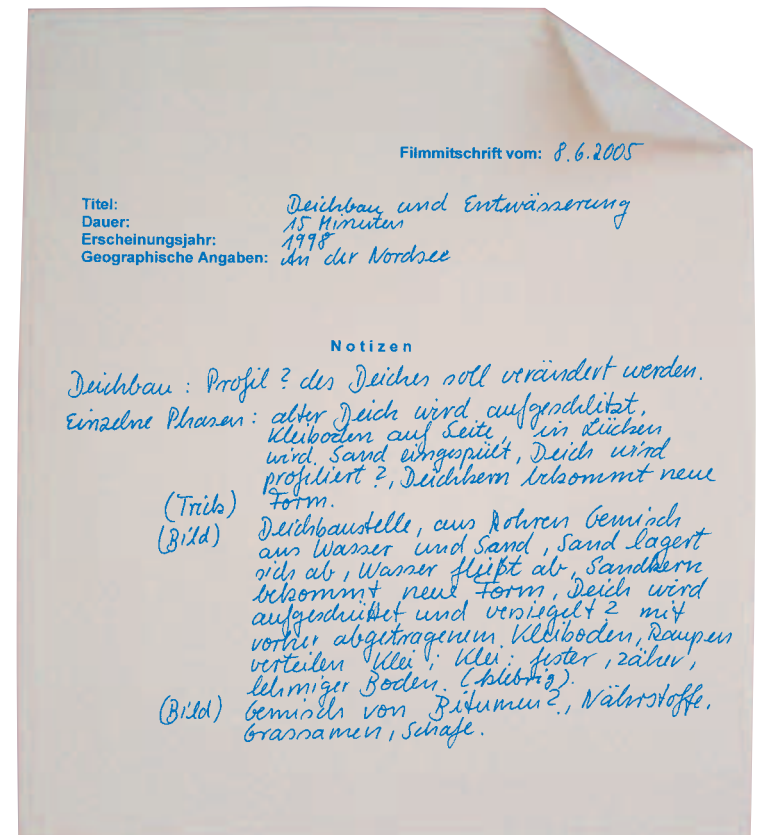 Filmmitschrift vom: 8.6.2005
Titel: Deichbau und Entwässerung
Dauer: 15 Minuten
Erscheinungsjahr: 1998
Geographische Angaben: An der Nordsee
Notizen
Deichbau : Profil ? des Deiches soll verändert werden.
Einzelne Phasen : alter Deich wird aufgeschlitzt,
Kleiboden auf Seite, in Lücken
wird Sand eingespült, Deich wird
profiliert ?, Deichkern bekommt neue
(Trick) Form.
(Bild) Deichbaustelle, aus Rohren Gemisch
aus Wasser und Sand, Sand lagert
sich ab, Wasser fließt ab, Sandkern
bekommt neue Form, Deich wird
aufgeschüttet und versiegelt ? mit
vorher abgetragenem Kleiboden, Raupen
verteilen Klei ; Klei : fester, zäher,
lehmiger Boden. (klebrig).
(Bild) Gemisch von Bitumen ?, Nährstoffe.
Grassamen, Schafe.